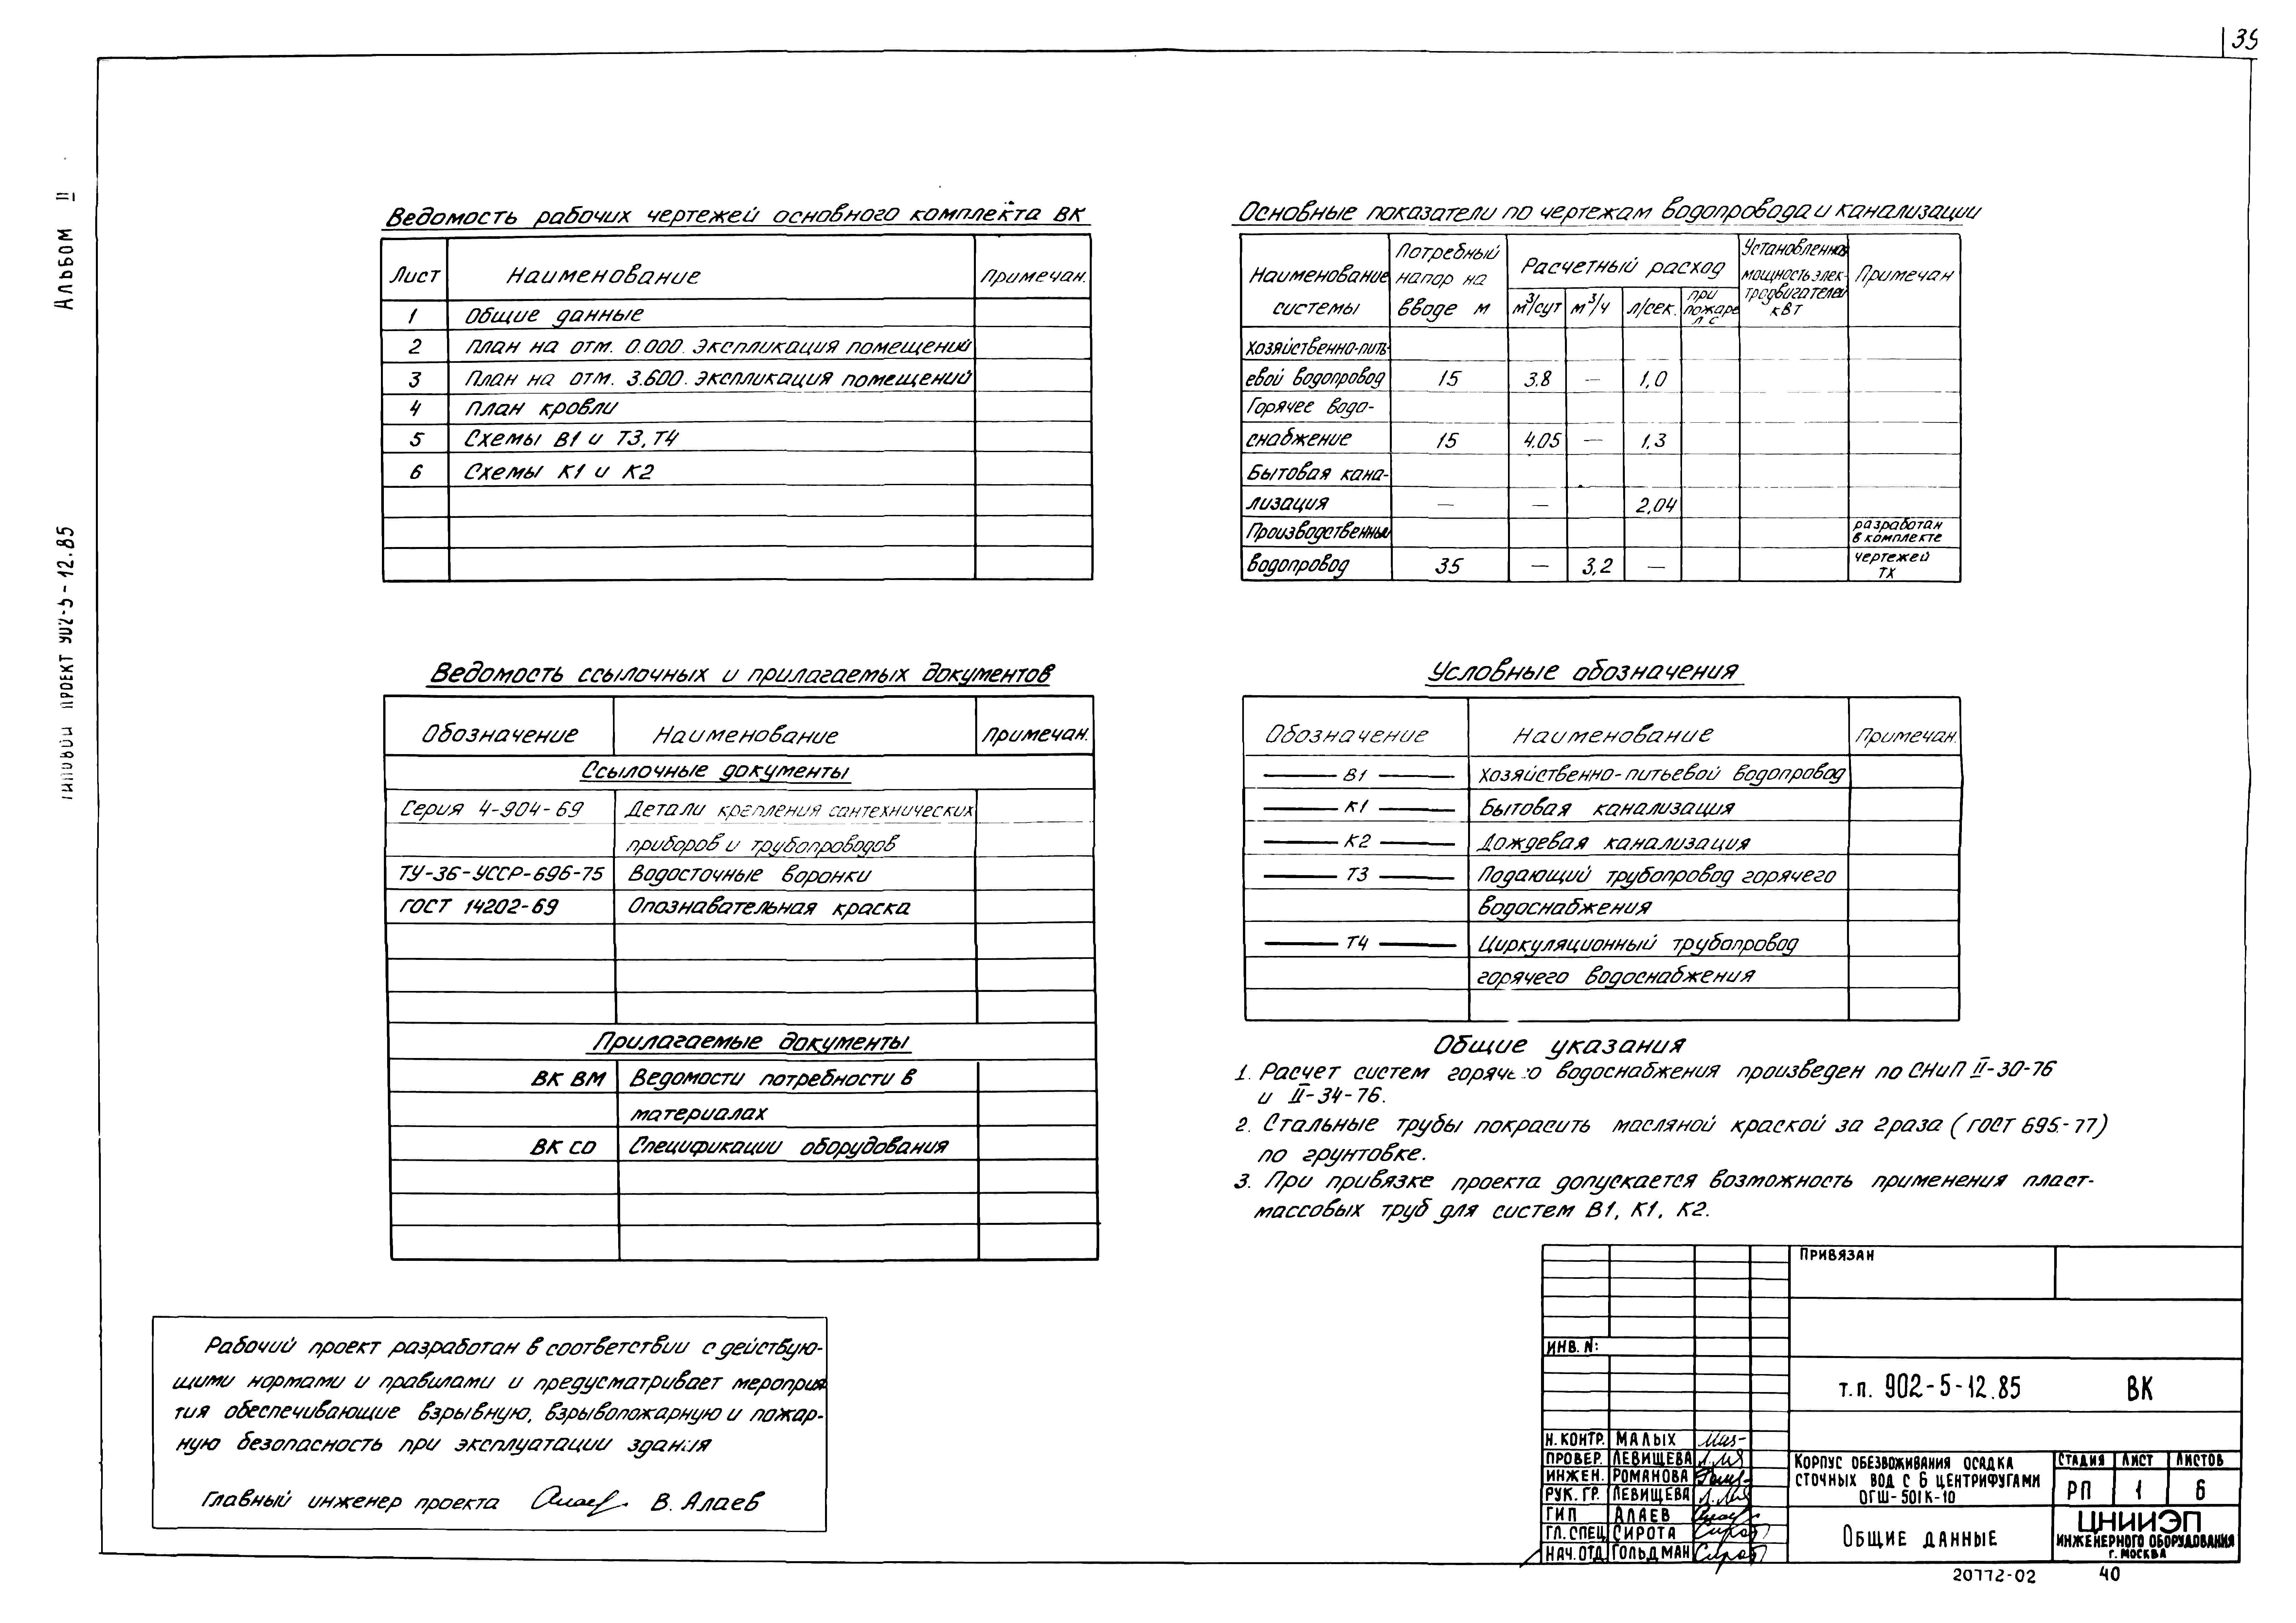 39
Альбом II
Типовой проект 902-5-12.85
Ведомость рабочих чертежей основного комплекта ВК
Лист Наименование Примечан.
1 Общие данные
2 План на отм. 0.000. Экспликация помещений
3 План на отм. 3.600. Экспликация помещений
4 План кровли
5 Схемы В1 и Т3, Т4
6 Схемы К1 и К2
Основные показатели по чертежам водопровода и канализации
Наименование системы Потребный напор на вводе м Расчетный расход Установленная мощность элек-тродвигателей кВт Примечан
м³/сут м³/ч л/сек. при пожаре л с
Хозяйственно-пить-
евой водопровод 15 3.8 — 1,0
Горячее водо-
снабжение 15 4.05 — 1,3
Бытовая кана-
лизация — — 2,04
Производственный разработан в комплекте
водопровод 35 — 3,2 — чертежей ТХ
Ведомость ссылочных и прилагаемых документов
Обозначение Наименование Примечан.
Ссылочные документы
Серия 4-904-69 Детали крепления сантехнических
приборов и трубопроводов
ТУ-36-УССР-696-75 Водосточные воронки
ГОСТ 14202-69 Опознавательная краска
Прилагаемые документы
ВК ВМ Ведомости потребности в
материалах
ВК СО Спецификации оборудования
Условные обозначения
Обозначение Наименование Примечан.
В1 Хозяйственно-питьевой водопровод
К1 Бытовая канализация
К2 Дождевая канализация
Т3 Подающий трубопровод горячего
водоснабжения
Т4 Циркуляционный трубопровод
горячего водоснабжения
Общие указания
1. Расчет систем горячего водоснабжения произведен по СНиП II-30-76
и II-34-76.
2. Стальные трубы покрасить масляной краской за 2 раза (ГОСТ 695-77)
по грунтовке.
3. При привязке проекта допускается возможность применения пласт-
массовых труб для систем В1, К1, К2.
Рабочий проект разработан в соответствии с действую-
щими нормами и правилами и предусматривает мероприя
тия обеспечивающие взрывную, взрывопожарную и пожар-
ную безопасность при эксплуатации здания
Главный инженер проекта В. Алаев
Привязан
Инв. №:
т.п. 902-5-12.85 ВК
Н. контр. Малых
Провер. Левищева
Инжен. Романова
Рук. гр. Левищева
ГИП Алаев
Гл. спец Сирота
Нач. отд Гольдман
Корпус обезвоживания осадка
сточных вод с 6 центрифугами
ОГШ-501К-10
Стадия Лист Листов
РП 1 6
Общие данные
ЦНИИЭП
инженерного оборудования
г. Москва
20772-02 40